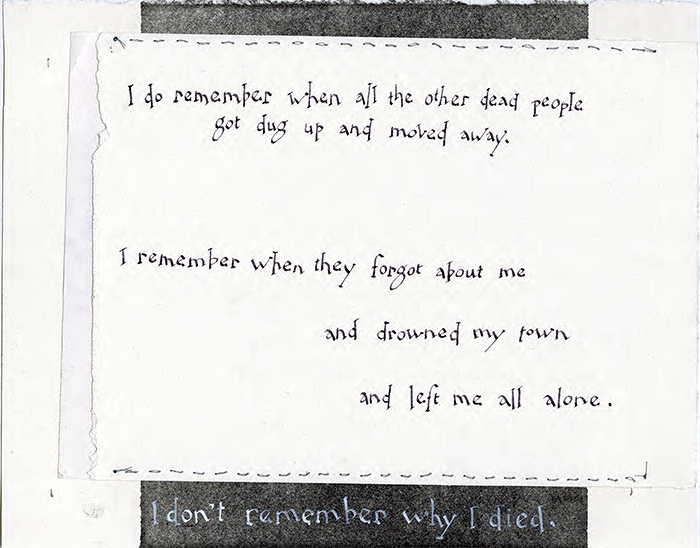 I do remember when all the other dead people
got dug up and moved away.
I remember when they forgot about me
and drowned my town
and left me all alone.
I don't remember why I died.